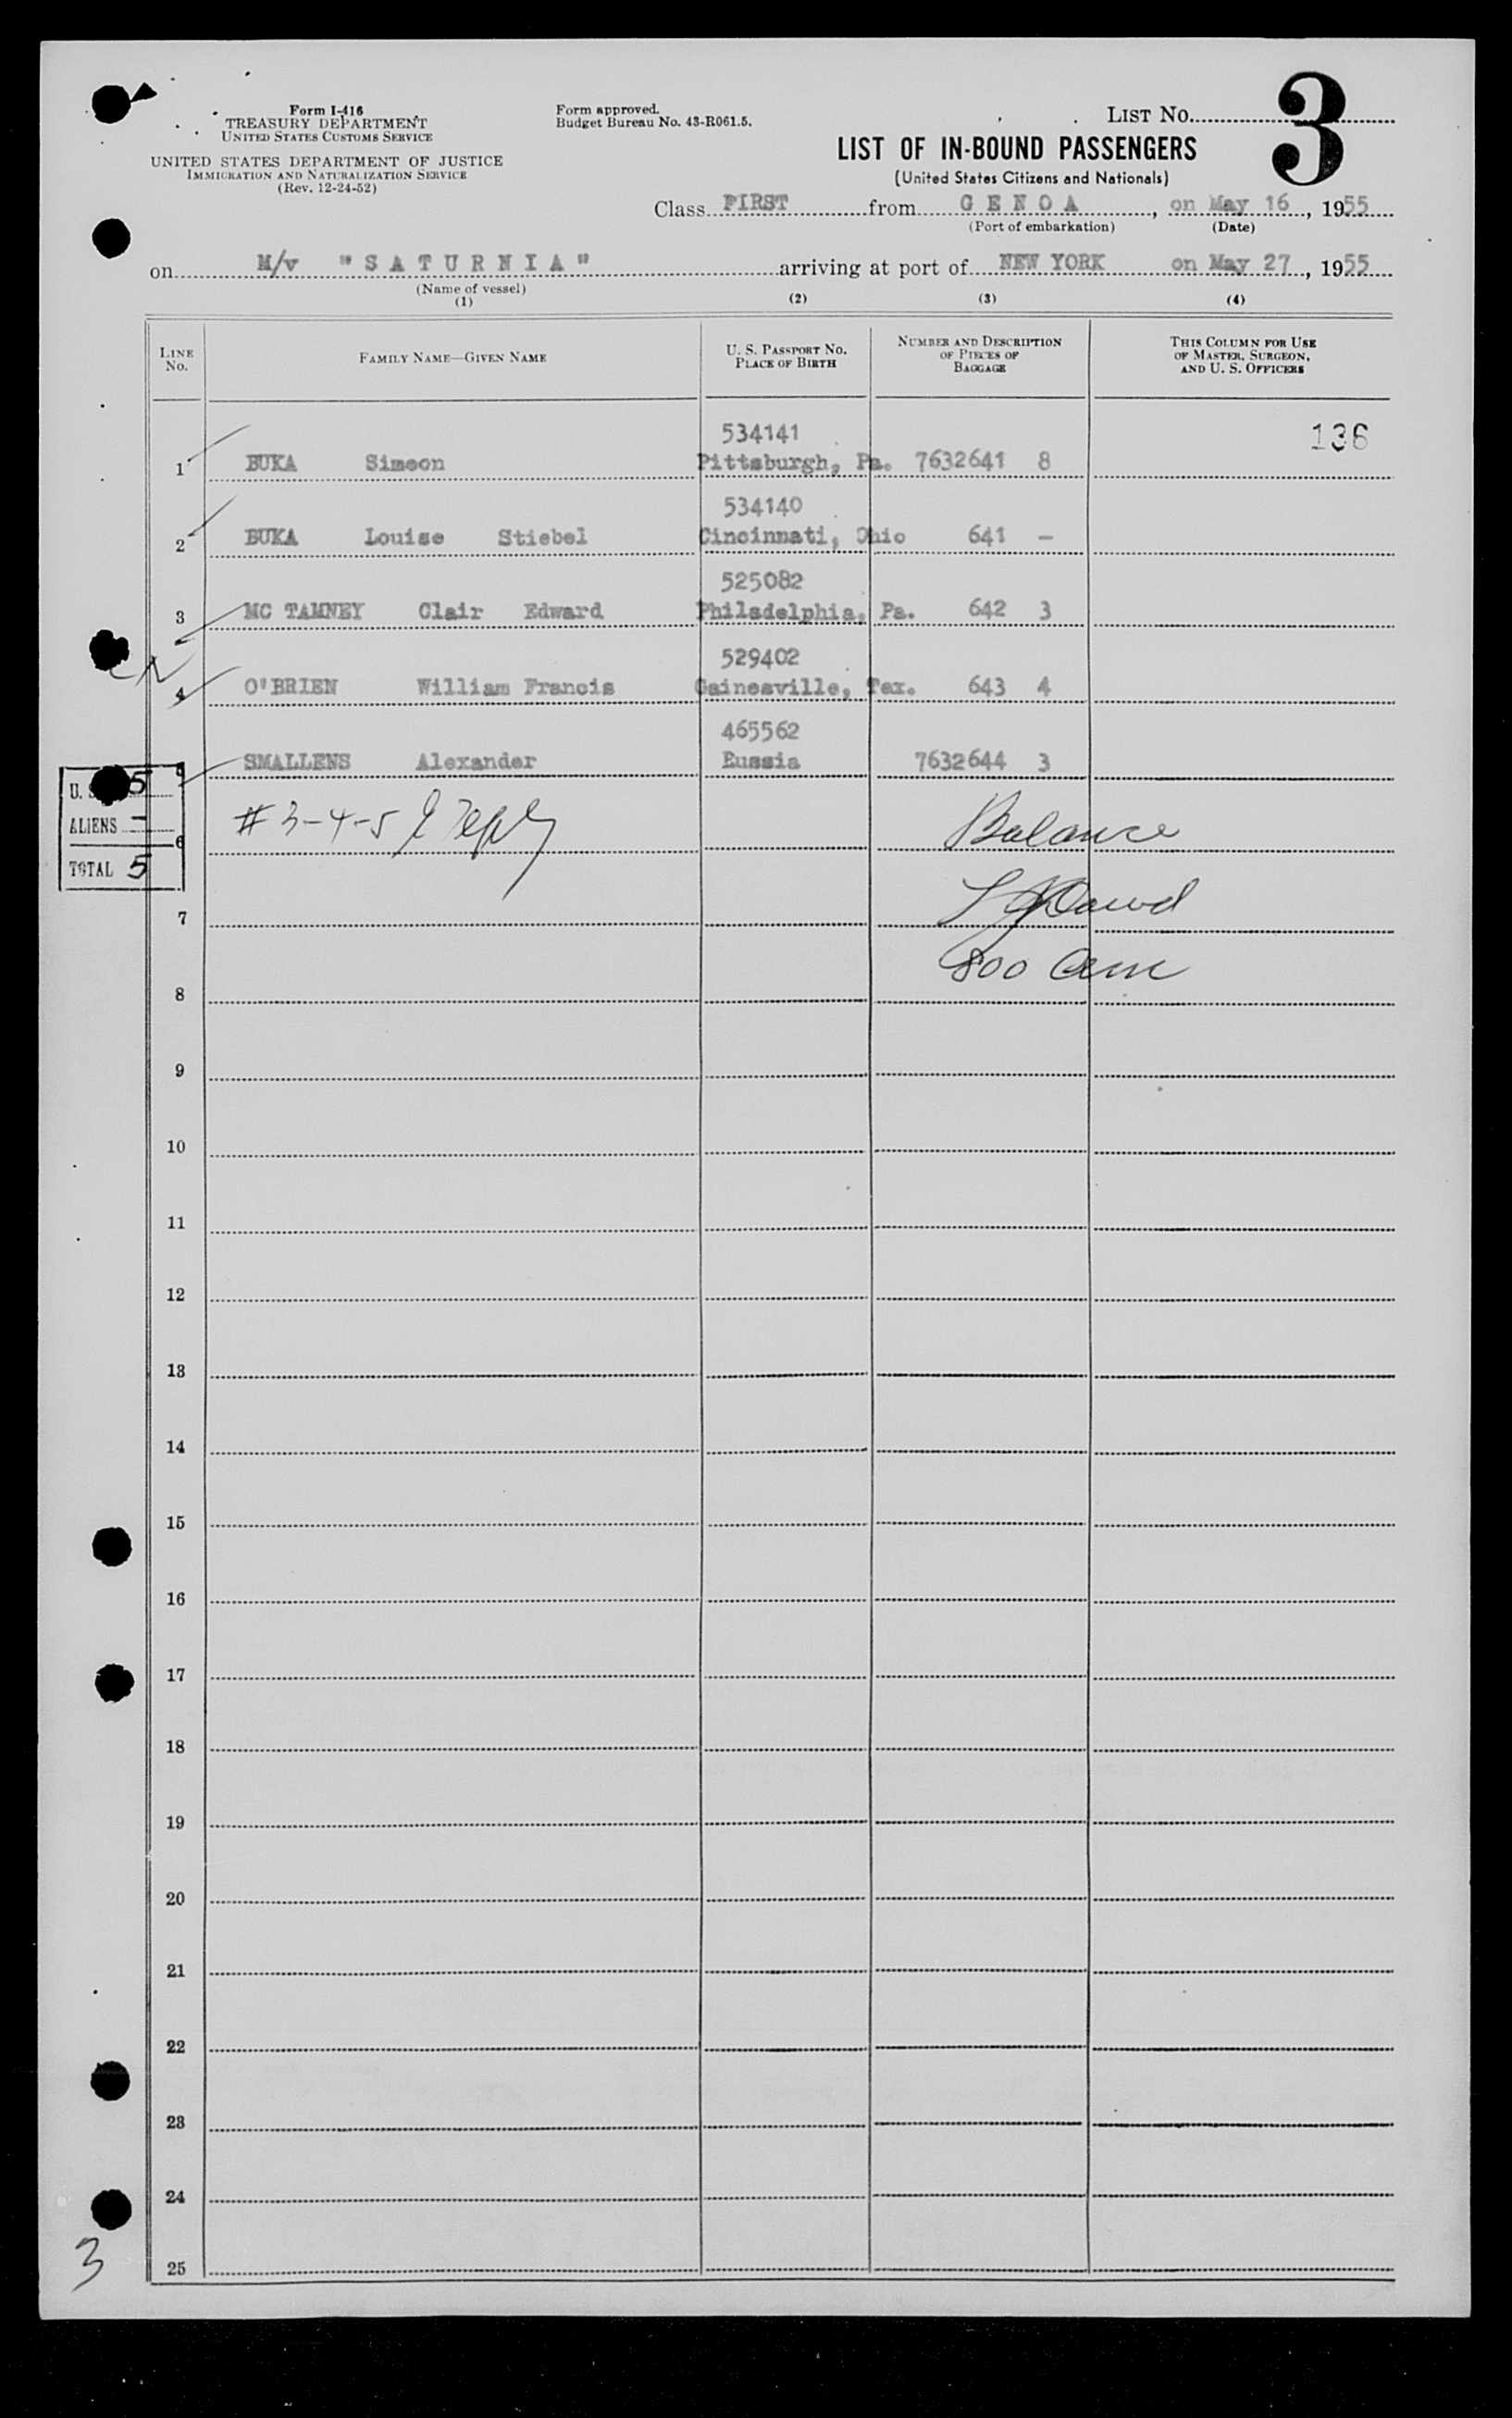 Form I-416
TREASURY DEPARTMENT
UNITED STATES CUSTOMS SERVICE
UNITED STATES DEPARTMENT OF JUSTICE
IMMIGRATION AND NATURALIZATION SERVICE
(Rev. 12-24-52)
Form approved.
Budget Bureau No. 43-R061.5.
LIST NO. 3
LIST OF IN-BOUND PASSENGERS
(United States Citizens and Nationals)
Class FIRST from G E N O A, on May 16, 1955
(Port of embarkation) (Date)
on M/v "S A T U R N I A" arriving at port of NEW YORK on May 27, 1955
(Name of vessel)
(1) (2) (3) (4)
LINE No. FAMILY NAME—GIVEN NAME U. S. PASSPORT NO. PLACE OF BIRTH NUMBER AND DESCRIPTION OF PIECES OF BAGGAGE THIS COLUMN FOR USE OF MASTER, SURGEON, AND U. S. OFFICERS
534141 136
1 BUKA Simeon Pittsburgh, Pa. 7632641 8
534140
2 BUKA Louise Stiebel Cincinnati, Ohio 641 -
525082
3 MC TAMNEY Clair Edward Philadelphia, Pa. 642 3
529402
4 O'BRIEN William Francis Gainesville, Tex. 643 4
465562
5 SMALLENS Alexander Russia 7632644 3
U. S. 5
ALIENS -
TOTAL 5
# 3-4-5
6 Balance
7
800
8
9
10
11
12
13
14
15
16
17
18
19
20
21
22
23
24
25
3